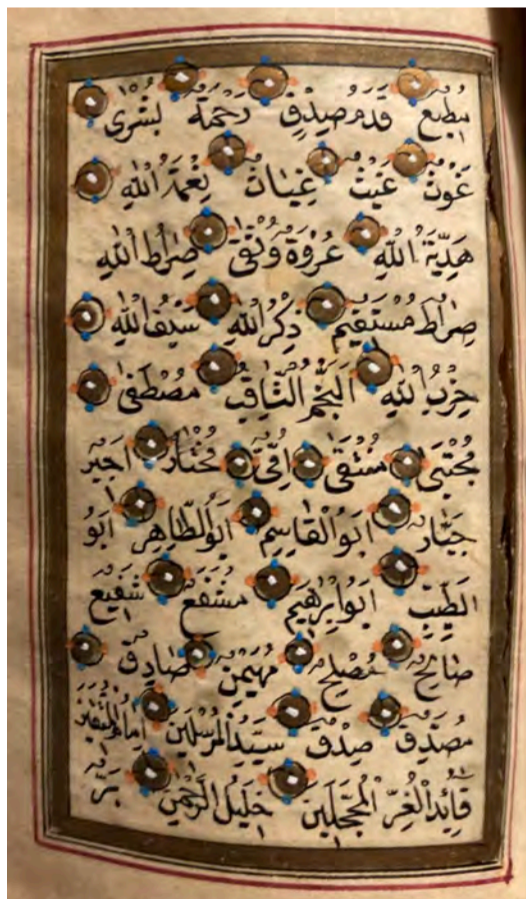 مُطِيعٌ قَدَمُ صِدْقٍ رَحْمَةٌ بُشْرٰى
غَوْثٌ غَيْثٌ غِيَاثٌ نِعْمَةُ اللّٰهِ
هَدِيَّةُ اللّٰهِ عُرْوَةٌ وُثْقٰى صِرَاطُ اللّٰهِ
صِرَاطٌ مُسْتَقِيمٌ ذِكْرُ اللّٰهِ سَيْفُ اللّٰهِ
حِزْبُ اللّٰهِ اَلنَّجْمُ الثَّاقِبُ مُصْطَفٰى
مُجْتَبٰى مُنْتَقٰى اُمِّىٌّ مُخْتَارٌ اَجِيرٌ
جَبَّارٌ اَبُو الْقَاسِمِ اَبُو الطَّاهِرِ اَبُو
الطَّيِّبِ اَبُو اِبْرٰهِيمَ مُشَفَّعٌ شَفِيعٌ
صَالِحٌ مُصْلِحٌ مُهَيْمِنٌ صَادِقٌ
مُصَدِّقٌ صِدْقٌ سَيِّدُ الْمُرْسَلِينَ اِمَامُ الْمُتَّقِينَ
قَائِدُ الْغُرِّ الْمُحَجَّلِينَ خَلِيلُ الرَّحْمٰنِ بَرٌّ